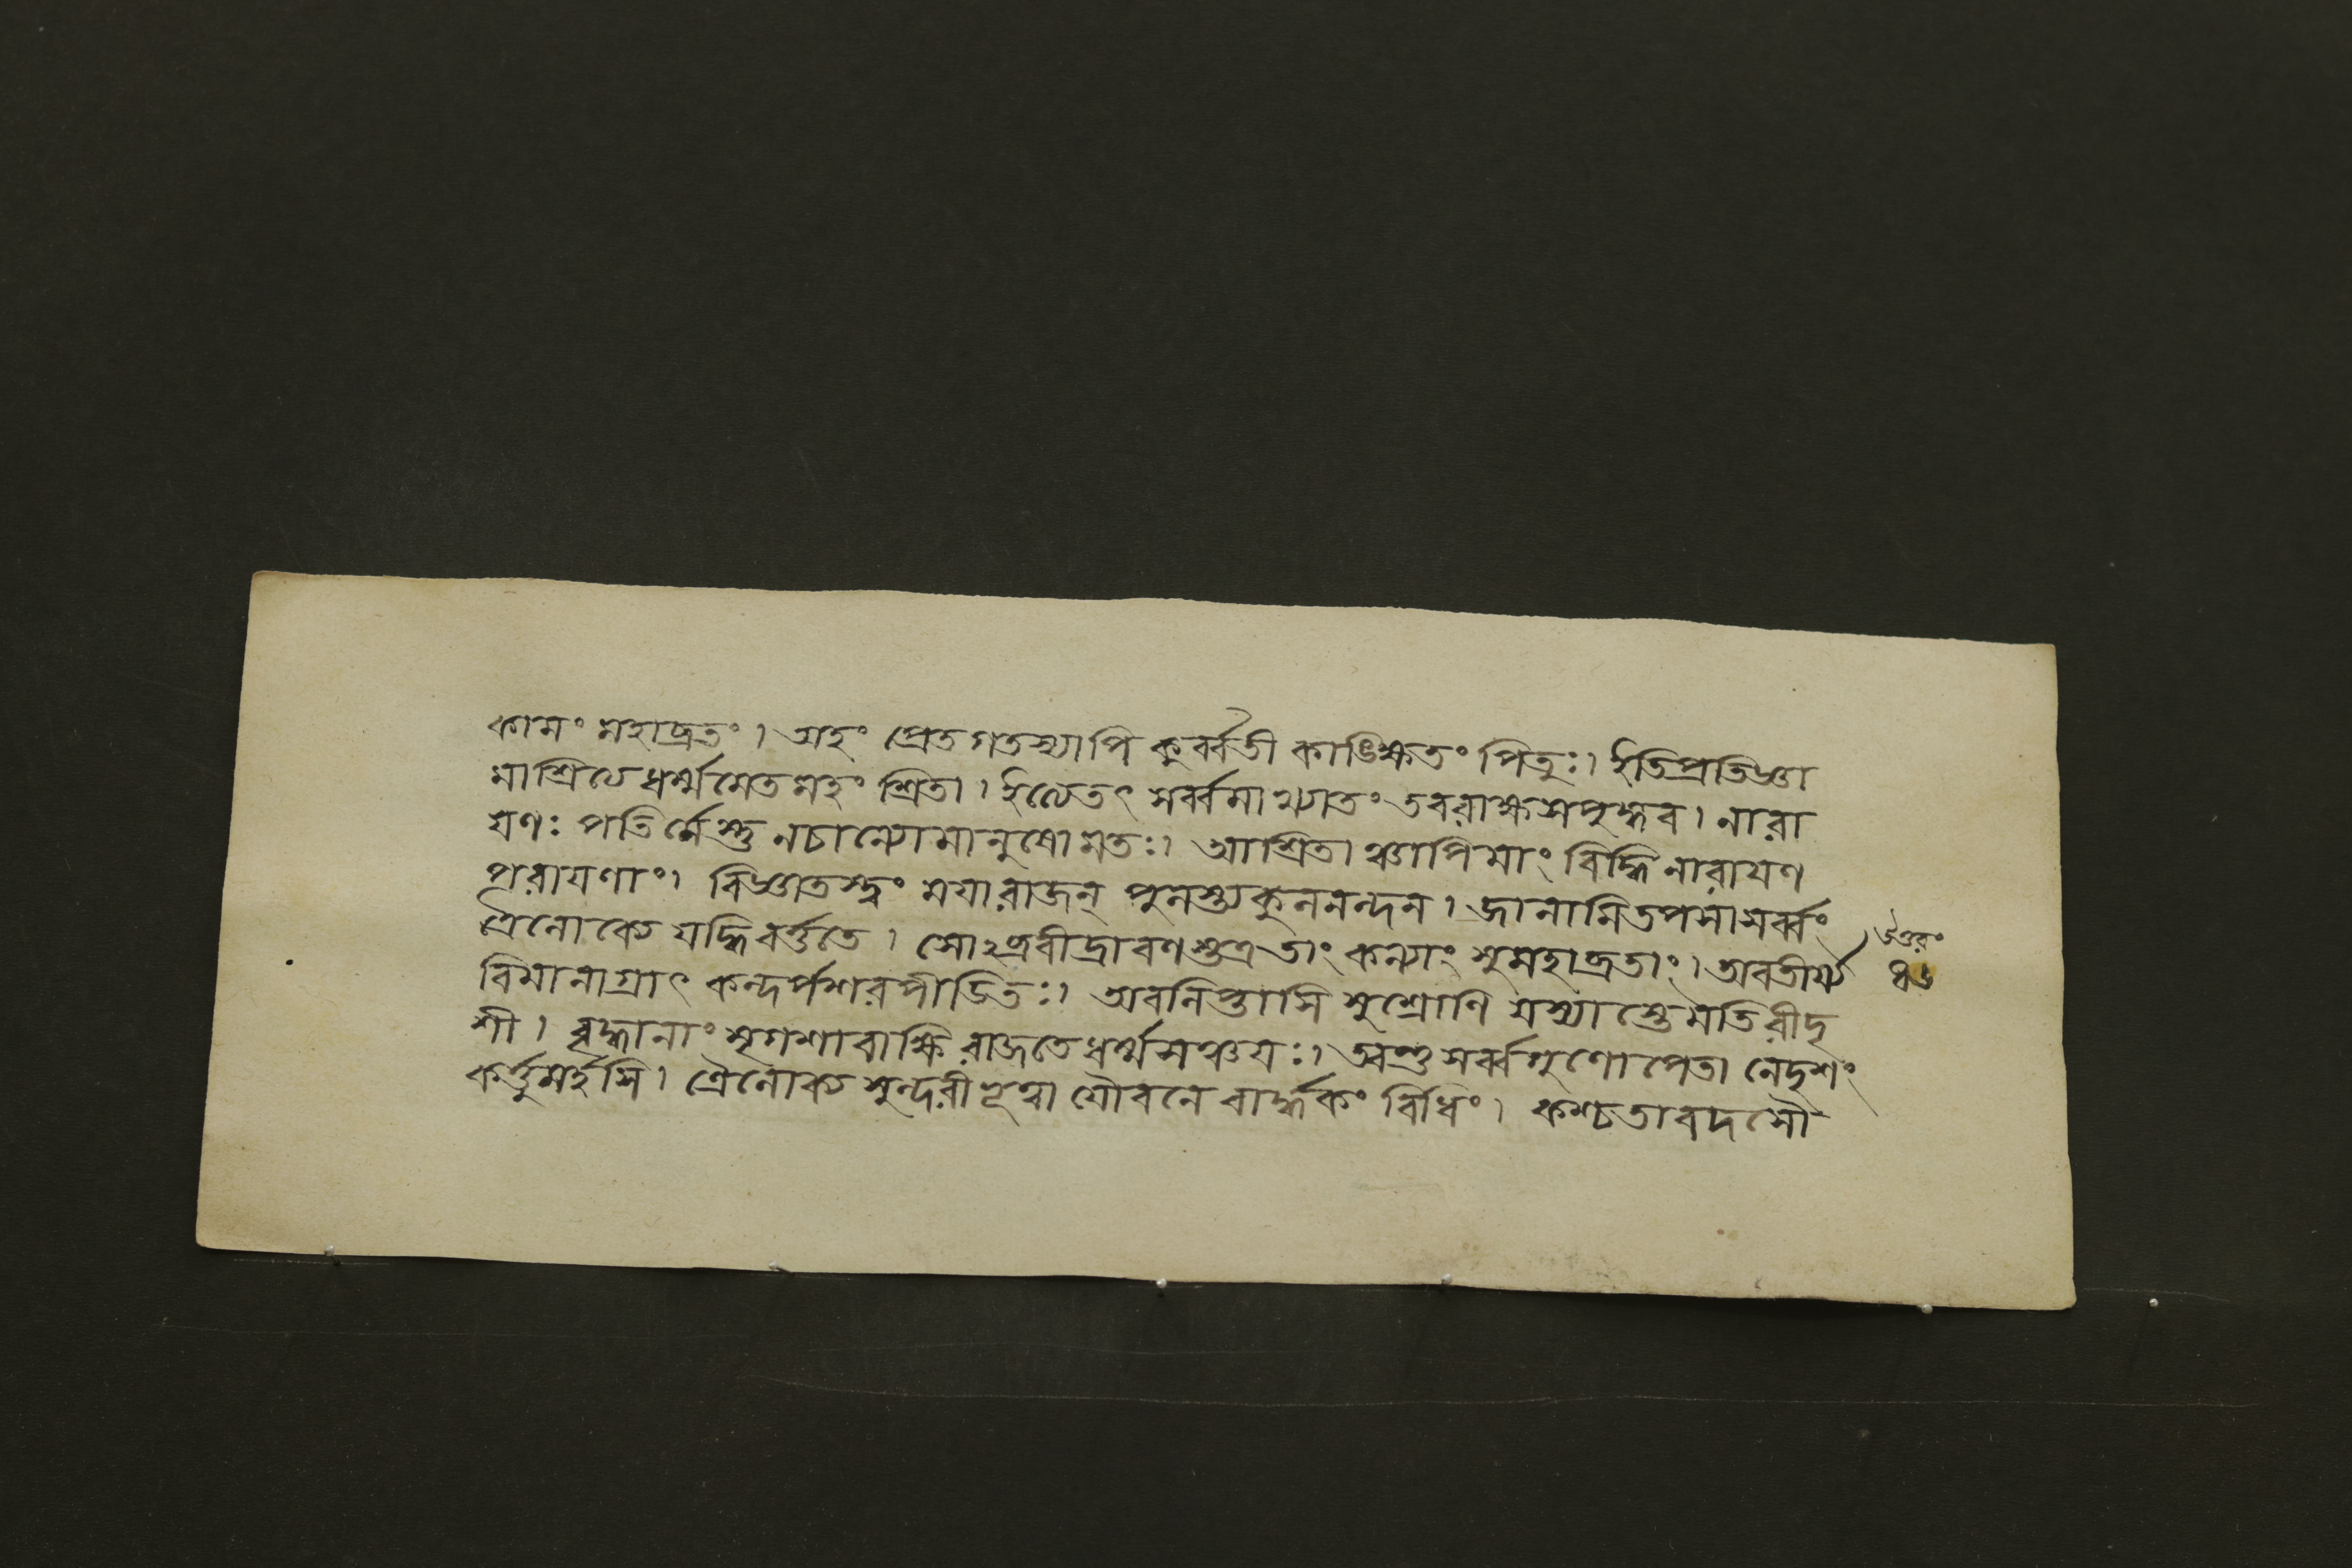 কামং মহাব্রতং। অহং প্রেতগতস্যাপি কুর্ব্বতী কাঙ্ক্ষিতং পিতুঃ। ইতিপ্রতিজ্ঞা
মাশ্রিত্যে ধর্ম্মমেতমহং শ্রিতা। ইত্যেতৎ সর্ব্বমাখ্যাতং তবরাক্ষসপুঙ্গব। নারা
য়ণঃ পতির্মেস্তু নচান্যোমানুষোমতঃ। আশ্রিতাঞ্চাপিমাং বিদ্ধি নারায়ণ
পরায়ণাং। বিজ্ঞাতস্ত্বং ময়ারাজন্ পুনস্ত্যকুলনন্দন। জানামিতপসাসর্ব্বং
ত্রৈলোক্যে যদ্ধিবর্ত্ততে। সোঽব্রবীদ্রাবণস্তুত্রতাং কন্যাং সুমহাব্রতাং। অবতীর্য্য
বিমানাগ্রাৎ কন্দর্পশরপীডিতঃ। অবলিপ্তাসি সুশ্রোণি যস্যাস্তেমতিরীদৃ
শী। বৃদ্ধানাং মৃগশাবাক্ষি রাজতে ধর্ম্মসঞ্চয়ঃ। ত্বন্তু সর্ব্বগুণোপেতা নেদৃশং
কর্ত্তুমর্হসি। ত্রৈলোক্য সুন্দরীভূত্বা যৌবনে বার্দ্ধকং বিধিং। কশ্চতাবদসৌ
উত্তরং